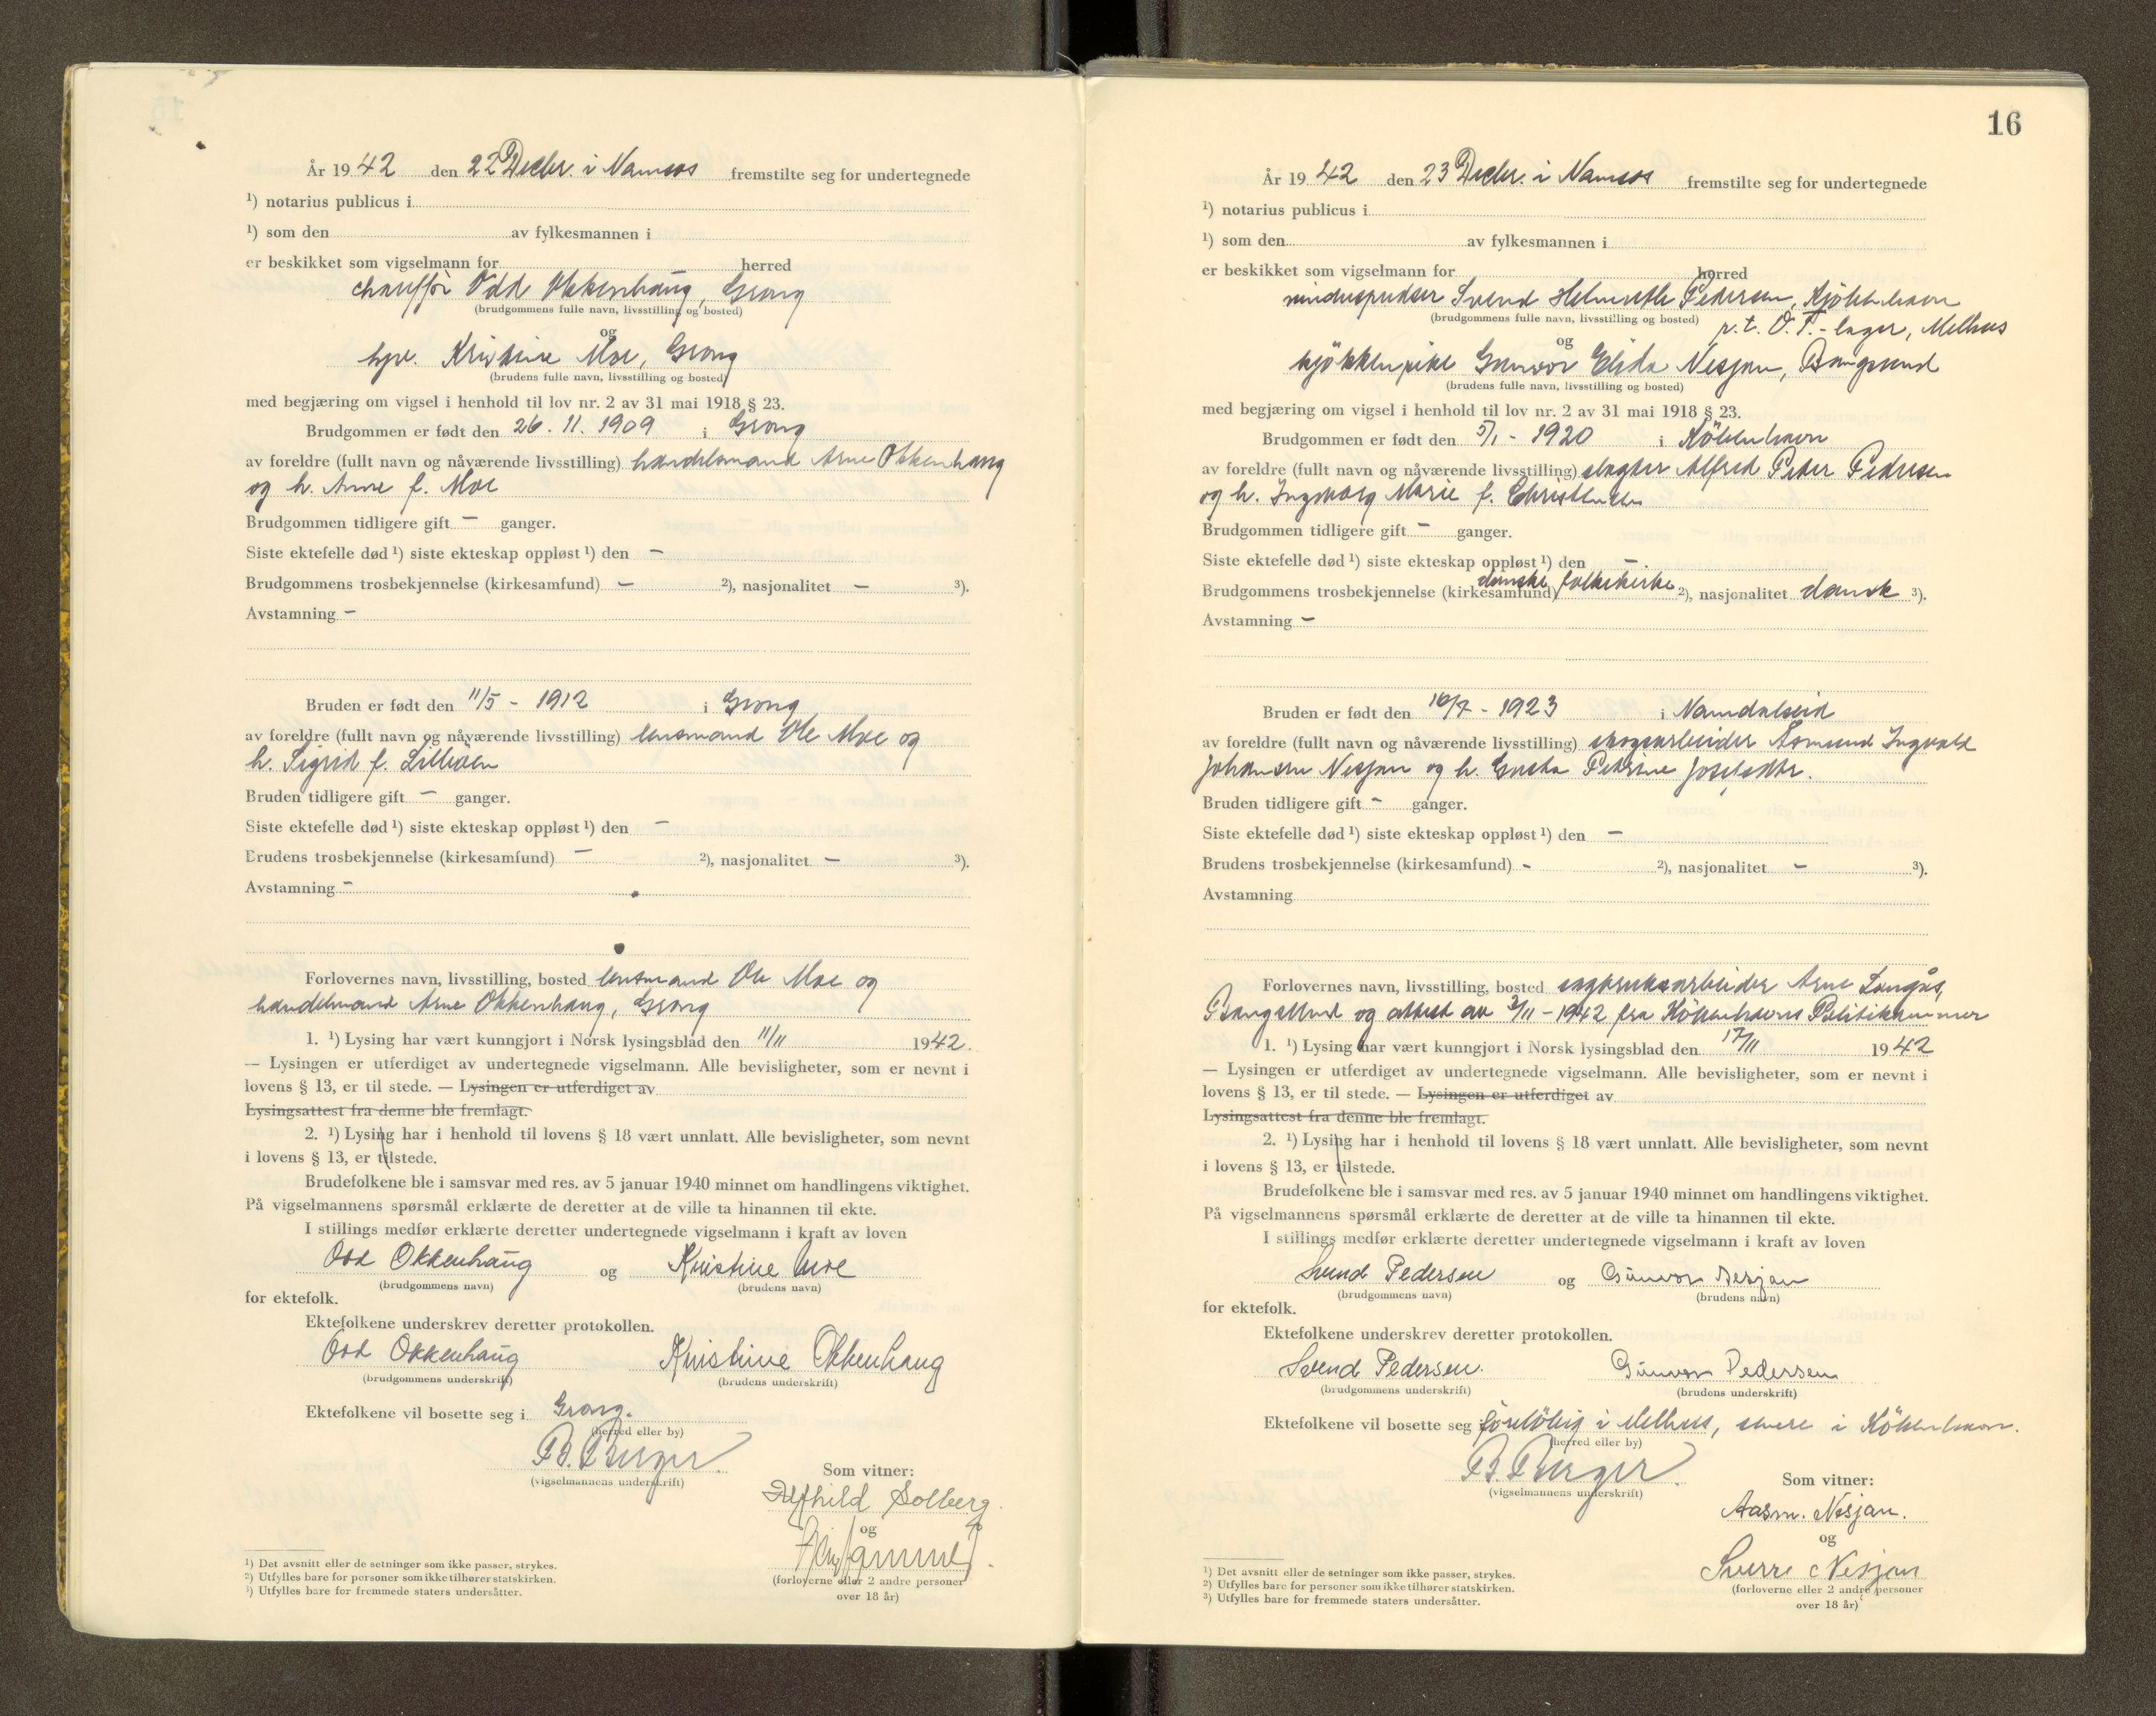 År 1942 den 22 Decbr. i Namsos fremstilte seg for undertegnede
1) notarius publicus i
1) som den av fylkesmannen i
er beskikket som vigselmann for herred
chauffør Odd Okkenhaug, Grong
(brudgommens fulle navn, livsstilling og bosted)
og
hpr. Kristine Moe, Grong
(brudens fulle navn, livsstilling og bosted)
med begjæring om vigsel i henhold til lov nr. 2 av 31 mai 1918 § 23.
Brudgommen er født den 26.11.1909 i Grong
av foreldre (fullt navn og nåværende livsstilling) handelsmand Arne Okkenhaug
og h. Anne f. Moe
Brudgommen tidligere gift - ganger.
Siste ektefelle død 1) siste ekteskap oppløst 1) den -
Brudgommens trosbekjennelse (kirkesamfund) - 2), nasjonalitet - 3).
Avstamning -
Bruden er født den 11/5 - 1912 i Grong
av foreldre (fullt navn og nåværende livsstilling) lensmand Ole Moe og
h. Sigrid f. Lilleöen
Bruden tidligere gift - ganger.
Siste ektefelle død 1) siste ekteskap oppløst 1) den -
Brudens trosbekjennelse (kirkesamfund) - 2), nasjonalitet - 3).
Avstamning -
Forlovernes navn, livsstilling, bosted lensmand Ole Moe og
handelmand Arne Okkenhaug, Grong
1. 1) Lysing har vært kunngjort i Norsk lysingsblad den 11/11 1942.
— Lysingen er utferdiget av undertegnede vigselmann. Alle bevisligheter, som er nevnt i
lovens § 13, er til stede. — Lysingen er utferdiget av
Lysingsattest fra denne ble fremlagt.
2. 1) Lysing har i henhold til lovens § 18 vært unnlatt. Alle bevisligheter, som nevnt
i lovens § 13, er tilstede.
Brudefolkene ble i samsvar med res. av 5 januar 1940 minnet om handlingens viktighet.
På vigselmannens spørsmål erklærte de deretter at de ville ta hinannen til ekte.
I stillings medfør erklærte deretter undertegnede vigselmann i kraft av loven
Odd Okkenhaug og Kristine Moe
(brudgommens navn) (brudens navn)
for ektefolk.
Ektefolkene underskrev deretter protokollen.
Odd Okkenhaug Kristine Okkenhaug
(brudgommens underskrift) (brudens underskrift)
Ektefolkene vil bosette seg i Grong.
(herred eller by)
B. Berger
(vigselmannens underskrift)
Som vitner:
Alfhild Solberg.
og
(forloverne eller 2 andre personer
over 18 år)
1) Det avsnitt eller de setninger som ikke passer, strykes.
2) Utfylles bare for personer som ikke tilhører statskirken.
3) Utfylles bare for fremmede staters undersåtter.
16
År 1942 den 23 Decbr. i Namsos fremstilte seg for undertegnede
1) notarius publicus i
1) som den av fylkesmannen i
er beskikket som vigselmann for herred
vinduspudser Svend Helmuth Pedersen, Kjöbenhavn
(brudgommens fulle navn, livsstilling og bosted) p.t. O.T.-lager, Melhus
og
kjökkenpike Gunvor Elida Nesjan, Bangsund
(brudens fulle navn, livsstilling og bosted)
med begjæring om vigsel i henhold til lov nr. 2 av 31 mai 1918 § 23.
Brudgommen er født den 5/1 - 1920 i Köbenhavn
av foreldre (fullt navn og nåværende livsstilling) slagter Alfred Peter Pedersen
og h. Ingeborg Marie f. Christensen
Brudgommen tidligere gift - ganger.
Siste ektefelle død 1) siste ekteskap oppløst 1) den -
Brudgommens trosbekjennelse (kirkesamfund) danske folkekirke 2), nasjonalitet dansk 3).
Avstamning -
Bruden er født den 16/7 - 1923 i Namdalseid
av foreldre (fullt navn og nåværende livsstilling) skogsarbeider Asmund Ingvald
Johansen Nesjan og h. Gusta Petrine Josefsdtr.
Bruden tidligere gift - ganger.
Siste ektefelle død 1) siste ekteskap oppløst 1) den -
Brudens trosbekjennelse (kirkesamfund) - 2), nasjonalitet - 3).
Avstamning
Forlovernes navn, livsstilling, bosted sagbruksarbeider Arne Langås,
Bangsund og attest av 3/11 - 1942 fra Köbenhavns Politikammer
1. 1) Lysing har vært kunngjort i Norsk lysingsblad den 17/11 1942
— Lysingen er utferdiget av undertegnede vigselmann. Alle bevisligheter, som er nevnt i
lovens § 13, er til stede. — Lysingen er utferdiget av
Lysingsattest fra denne ble fremlagt.
2. 1) Lysing har i henhold til lovens § 18 vært unnlatt. Alle bevisligheter, som nevnt
i lovens § 13, er tilstede.
Brudefolkene ble i samsvar med res. av 5 januar 1940 minnet om handlingens viktighet.
På vigselmannens spørsmål erklærte de deretter at de ville ta hinannen til ekte.
I stillings medfør erklærte deretter undertegnede vigselmann i kraft av loven
Svend Pedersen og Gunvor Nesjan
(brudgommens navn) (brudens navn)
for ektefolk.
Ektefolkene underskrev deretter protokollen.
Svend Pedersen. Gunvor Pedersen
(brudgommens underskrift) (brudens underskrift)
Ektefolkene vil bosette seg i foreløbig i Melhus, senere i Köbenhavn.
(herred eller by)
B. Berger
(vigselmannens underskrift)
Som vitner:
Aasm. Nesjan.
og
Sverre Nesjan
(forloverne eller 2 andre personer
over 18 år)
1) Det avsnitt eller de setninger som ikke passer, strykes.
2) Utfylles bare for personer som ikke tilhører statskirken.
3) Utfylles bare for fremmede staters undersåtter.